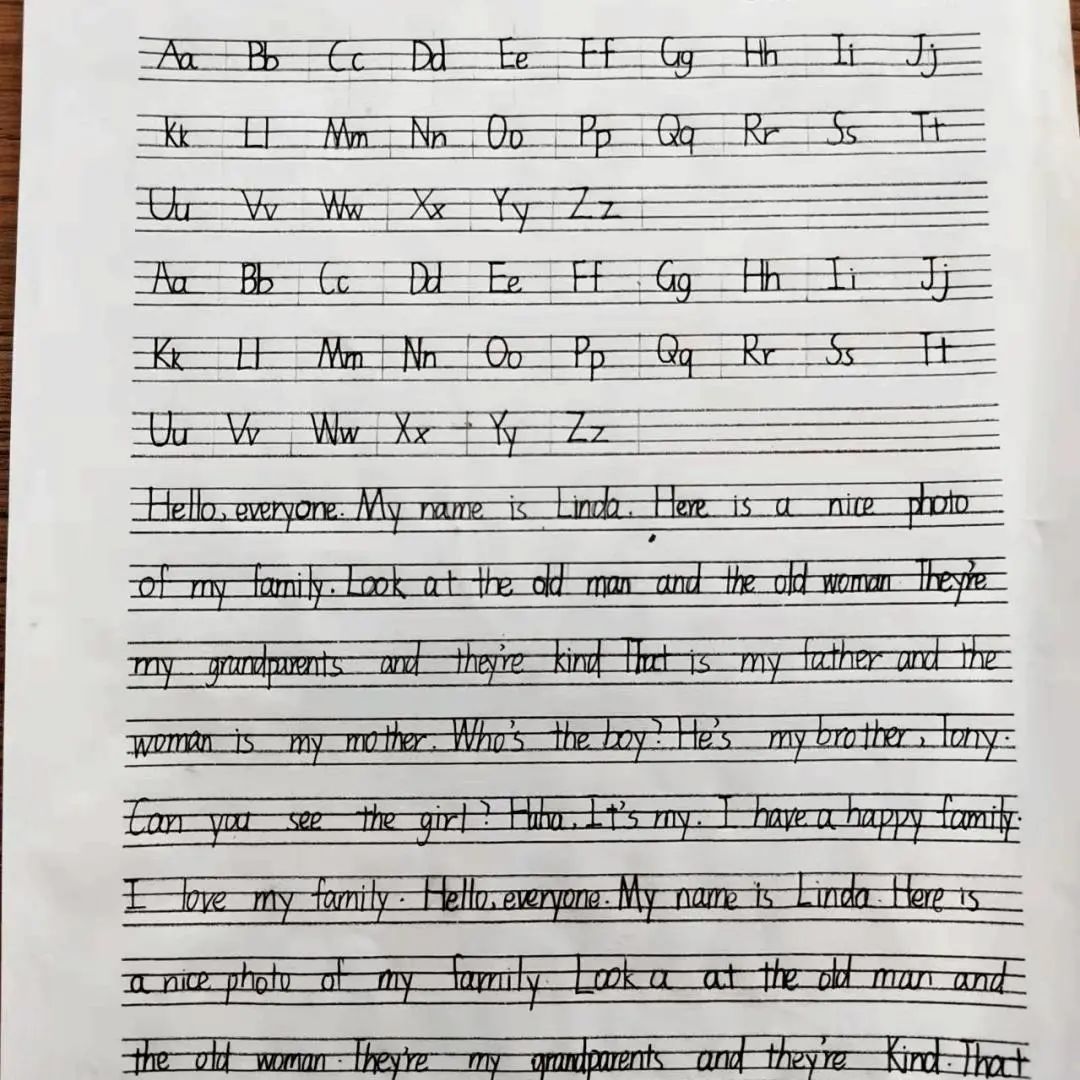 Aa Bb Cc Dd Ee Ff Gg Hh Ii Jj
Kk Ll Mm Nn Oo Pp Qq Rr Ss Tt
Uu Vv Ww Xx Yy Zz
Aa Bb Cc Dd Ee Ff Gg Hh Ii Jj
Kk Ll Mm Nn Oo Pp Qq Rr Ss Tt
Uu Vv Ww Xx Yy Zz
Hello, everyone. My name is Linda. Here is a nice photo
of my family. Look at the old man and the old woman They're
my grandparents and they're kind That is my father and the
woman is my mother. Who's the boy? He's my brother, Tony.
Can you see the girl? Haha, It's my. I have a happy family.
I love my family. Hello, everyone. My name is Linda. Here is
a nice photo of my family. Look a at the old man and
the old woman. They're my grandparents and they're Kind. That